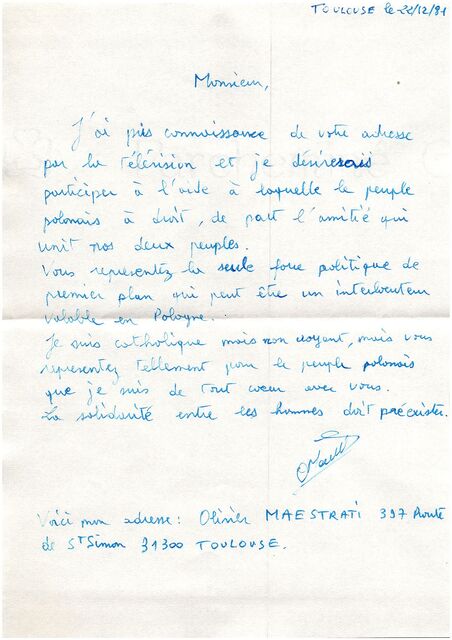 TOULOUSE le 22/12/81
Monsieur,
J'ai pris connaissance de votre adresse
par la télévision et je désirerais
participer à l'aide à laquelle le peuple
polonais à droit, de part l'amitié qui
unit nos deux peuples.
Vous representez la seule force politique de
premier plan qui peut être un interlocuteur
valable en Pologne.
Je suis catholique mais non croyant, mais vous
representez tellement pour le peuple polonais
que je suis de tout coeur avec vous.
La solidarité entre les hommes doit préexister.
Voici mon adresse: Olivier MAESTRATI 397 Route
de St Simon 31300 TOULOUSE.